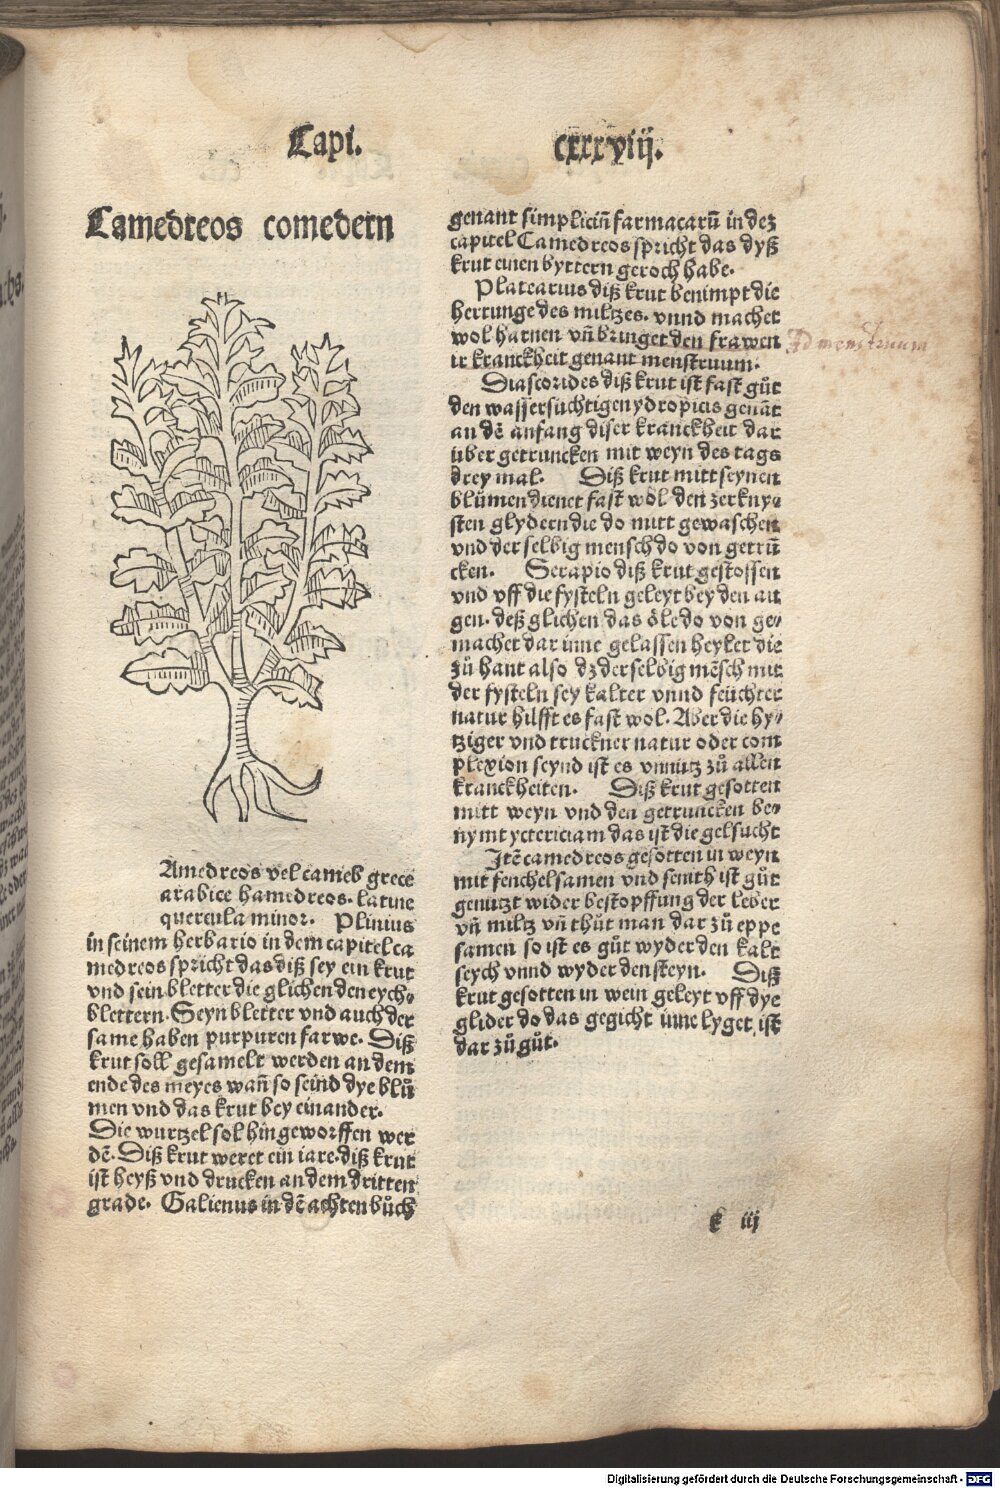 Capi. cxxxviij.
Camedreos comedern
Amedreos vel cameb grece
arabice hamedreos. latine
quercula minor. Plinius
in seinem herbario in dem capitel ca
medreos spricht das diß sey ein krut
vnd sein bletter die glichen den eych⸗
blettern. Seyn bletter vnd auch der
same haben purpuren farwe. Diß
krut soll gesamelt werden an dem
ende des meyes wañ so seind dye blů
men vnd das krut bey einander.
Die wurtzel sol hin geworffen wer
dē. Diß krut weret ein iare. diß krut
ist heyß vnd drucken an dem dritten
grade. Galienus in dē achten bůch
genant simpliciū farmacarū in dez
capitel Camedreos spricht das dyß
krut einen byttern geroch habe.
Platearius diß krut benimpt die
hertunge des miltzes. vnnd machet
wol harnen vñ bringet den frawen
ir kranckheit genant menstruum.
Diascorides diß krut ist fast gůt
den wassersüchtigen ydropicis genāt
an dē anfang diser kranckheit dar
über getruncken mit weyn des tags
drey mal. Diß krut mitt seynen
blůmen dienet fast wol den zerkny⸗
sten glydern die do mitt gewaschen
vnd der selbig mensch do von getrū
cken. Serapio diß krut gestossen
vnd vff die fysteln geleyt bey den au
gen. deß glichen das öle do von ge⸗
machet dar inne gelassen heylet die
zů hant also dz der selbig mēsch mit
der fysteln sey kalter vnnd feüchter
natur hilfft es fast wol. Aber die hy⸗
tziger vnd truckner natur oder com
plexion seynd ist es vnnütz zů allen
kranckheiten. Diß krut gesotten
mitt weyn vnd den getruncken be⸗
nymt yctericiam das ist die gelsucht
Itē camedreos gesotten in weyn
mit fenchelsamen vnd semth ist gůt
genützt wider bestopffung der leber
vñ miltz vñ thůt man dar zů eppe
samen so ist es gůt wyder den kalt
seych vnnd wyder den steyn. Diß
krut gesotten in wein geleyt vff dye
glider do das gegicht inne lyget ist
dar zů gůt.
Ad menstruum
k iij
Digitalisierung gefördert durch die Deutsche Forschungsgemeinschaft - DFG